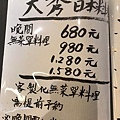 大秀日本料
晚間
無菜單料理
680元
980元
1.280元
1.580元
客製化無菜單料理
需提前予約